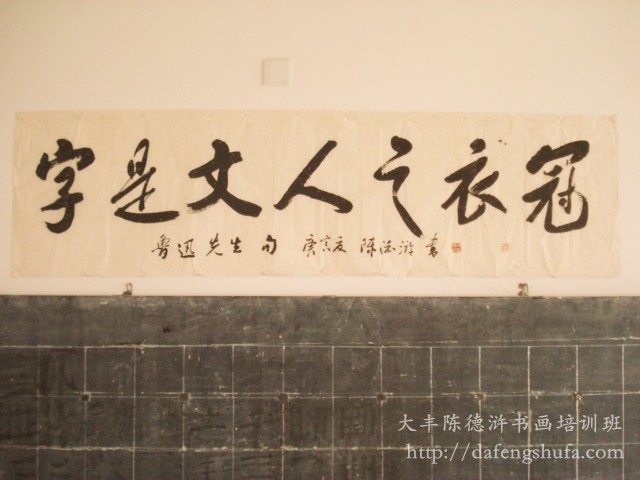 字是文人之衣冠
鲁迅先生句 庚寅夏 陈德浒书
大丰陈德浒书画培训班
http://dafengshufa.com